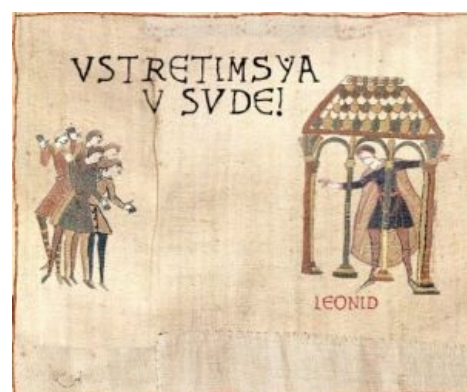 VSTRETIMSYA
V SVDE!
LEONID